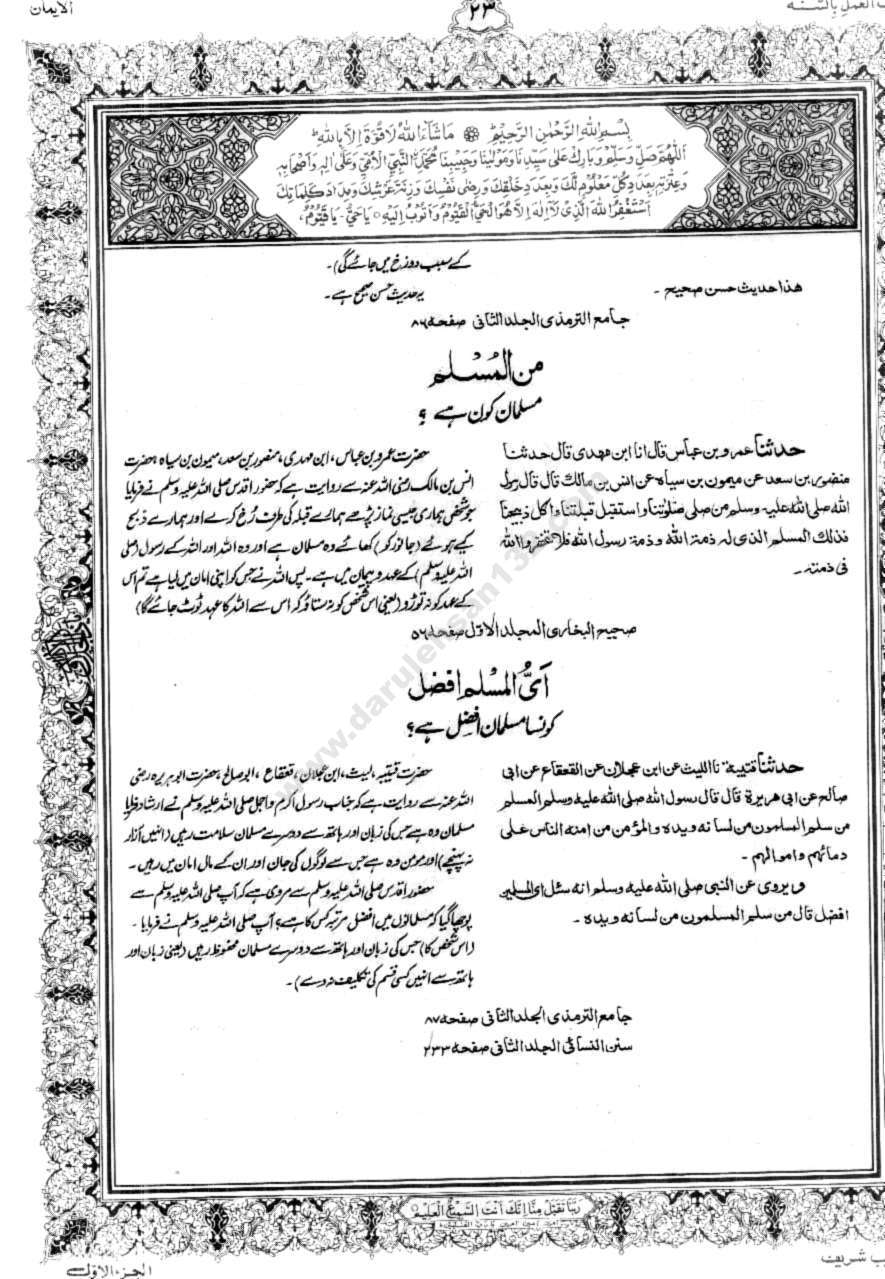 العمل بالسنة
٢٣
الايمان
بِسْمِ اللهِ الرَّحْمٰنِ الرَّحِيْمِ مَاشَآءَ اللهُ لَاقُوَّةَ اِلَّا بِاللهِ
اَللّٰهُمَّ صَلِّ وَسَلِّمْ وَبَارِكْ عَلٰى سَيِّدِنَا وَمَوْلِيْنَا وَحَبِيْبِنَا مُحَمَّدِ النَّبِيِّ الْاُمِّيِّ وَعَلٰى اٰلِهٖ وَاَصْحَابِهٖ
وَعِتْرَتِهٖ بِعَدَدِ كُلِّ مَعْلُوْمٍ لَّكَ وَبِعَدَدِ خَلْقِكَ وَرِضٰى نَفْسِكَ وَزِنَةَ عَرْشِكَ وَمِدَادَ كَلِمَاتِكَ
اَسْتَغْفِرُ اللهَ الَّذِىْ لَآ اِلٰهَ اِلَّا هُوَ الْحَىُّ الْقَيُّوْمُ وَاَتُوْبُ اِلَيْهِ يَاحَىُّ - يَا قَيُّوْمُ
هذا حديث حسن صحيح -
کے سبب دوزخ میں جائے گی)۔
یہ حدیث حسن صحیح ہے۔
جامع الترمذى الجلد الثانى صفحه ٨٦
من المُسْلم
مسلمان کون ہے ؟
حدثنا عمرو بن عباس قال انا ابن مهدى قال حدثنا
منصور بن سعد عن ميمون بن سياه عن انس بن مالك قال قال رسول
الله صلى الله عليه وسلم من صلى صلوتنا واستقبل قبلتنا واكل ذبيحتنا
فذلك المسلم الذى له ذمة الله وذمة رسول الله فلا تخفروا الله
فى ذمته -
حضرت عمرو بن عباس، ابن مہدی، منصور بن سعد، میمون بن سیاہ، حضرت
انس بن مالک رضی اللہ عنہ سے روایت ہے کہ حضور اقدس صلی اللہ علیہ وسلم نے فرمایا
جو شخص ہماری جیسی نماز پڑھے ہمارے قبلہ کی طرف رُخ کرے اور ہمارے ذبح
کیے ہوئے (جانور کو) کھائے وہ مسلمان ہے اور وہ اللہ اور اللہ کے رسول (صلی
اللہ علیہ وسلم) کے عہد و پیمان میں ہے۔ پس اللہ نے جس کو اپنی امان میں لیا ہے تم اس
کے عہد کو نہ توڑو (یعنی اس شخص کو نہ ستاؤ کہ اس سے اللہ کا عہد ٹوٹ جائے گا)
صحيح البخارى المجلد الاوّل صفحه ٥٦
اَىُّ المُسْلم افضل
کونسا مسلمان افضل ہے؟
حدثنا قتيبة نا الليث عن ابن عجلان عن القعقاع عن ابى
صالح عن ابى هريرة قال قال رسول الله صلى الله عليه وسلم المسلم
من سلم المسلمون من لسانه ويده والمؤمن من امنه الناس على
دمائهم واموالهم -
ويروى عن النبى صلى الله عليه وسلم انه سئل اى المسلمين
افضل قال من سلم المسلمون من لسانه ويده -
حضرت قتیبہ، لیث، ابن عجلان، قعقاع، ابو صالح، حضرت ابوہریرہ رضی
اللہ عنہ سے روایت ہے کہ جناب رسول اکرم و اجمل صلی اللہ علیہ وسلم نے ارشاد فرمایا
مسلمان وہ ہے جس کی زبان اور ہاتھ سے دوسرے مسلمان سلامت رہیں (انہیں آزار
نہ پہنچے) اور مومن وہ ہے جس سے لوگوں کی جان اور ان کے مال امان میں رہیں۔
حضور اقدس صلی اللہ علیہ وسلم سے مروی ہے کہ آپ صلی اللہ علیہ وسلم سے
پوچھا گیا کہ مسلمانوں میں افضل مرتبہ کس کا ہے؟ آپ صلی اللہ علیہ وسلم نے فرمایا۔
(اس شخص کا) جس کی زبان اور ہاتھ سے دوسرے مسلمان محفوظ رہیں (یعنی زبان اور
ہاتھ سے انہیں کسی قسم کی تکلیف نہ دے)۔
جامع الترمذى الجلد الثانى صفحه ٨٧
سنن النسائى الجلد الثانى صفحه ٢٣٣
رَبَّنَا تَقَبَّلْ مِنَّا اِنَّكَ اَنْتَ السَّمِيْعُ الْعَلِيْمُ
شريف
الجزء الاوّل